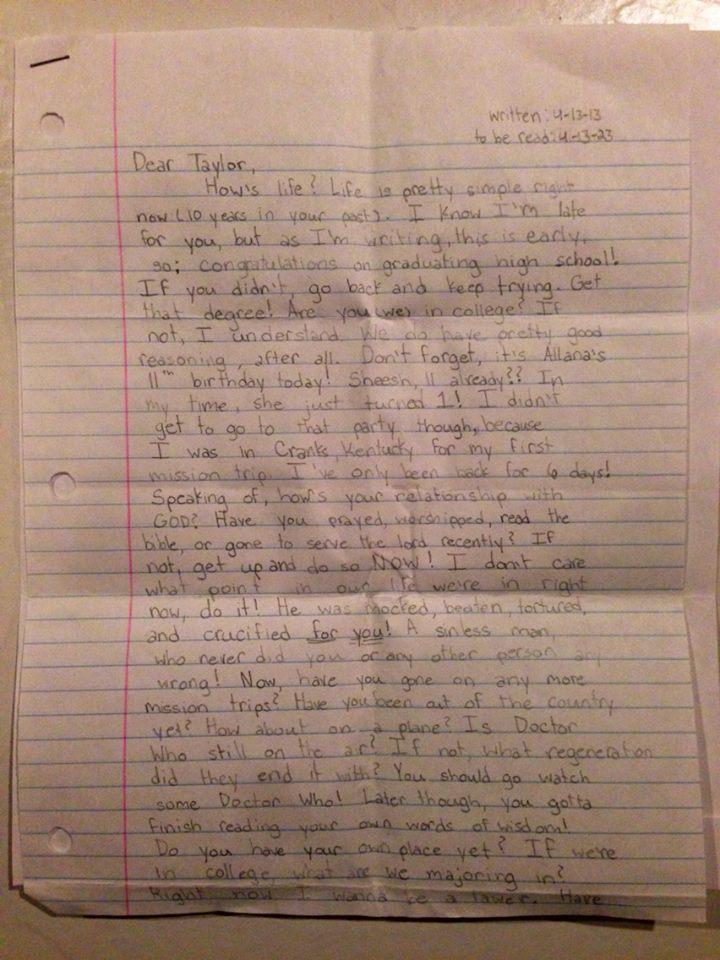 written: 4-13-13
to be read: 4-13-23
Dear Taylor,
How's life? Life is pretty simple right
now (10 years in your past). I know I'm late
for you, but as I'm writing, this is early,
so; congratulations on graduating high school!
If you didn't, go back and keep trying. Get
that degree! Are you (we) in college? If
not, I understand. We do have pretty good
reasoning, after all. Don't forget, it's Allana's
11th birthday today! Sheesh, 11 already?? In
my time, she just turned 1! I didn't
get to go to that party though, because
I was in Cranks, Kentucky for my first
mission trip. I've only been back for 6 days!
Speaking of, how's your relationship with
GOD? Have you prayed, worshipped, read the
bible, or gone to serve the lord recently? If
not, get up and do so NOW! I don't care
what point in our life we're in right
now, do it! He was mocked, beaten, tortured,
and crucified for you! A sinless man,
who never did you or any other person any
wrong! Now, have you gone on any more
mission trips? Have you been out of the country
yet? How about on a plane? Is Doctor
Who still on the air? If not, what regeneration
did they end it with? You should go watch
some Doctor Who! Later though, you gotta
finish reading your own words of wisdom!
Do you have your own place yet? If we're
in college, what are we majoring in?
Right now I wanna be a lawer. Have